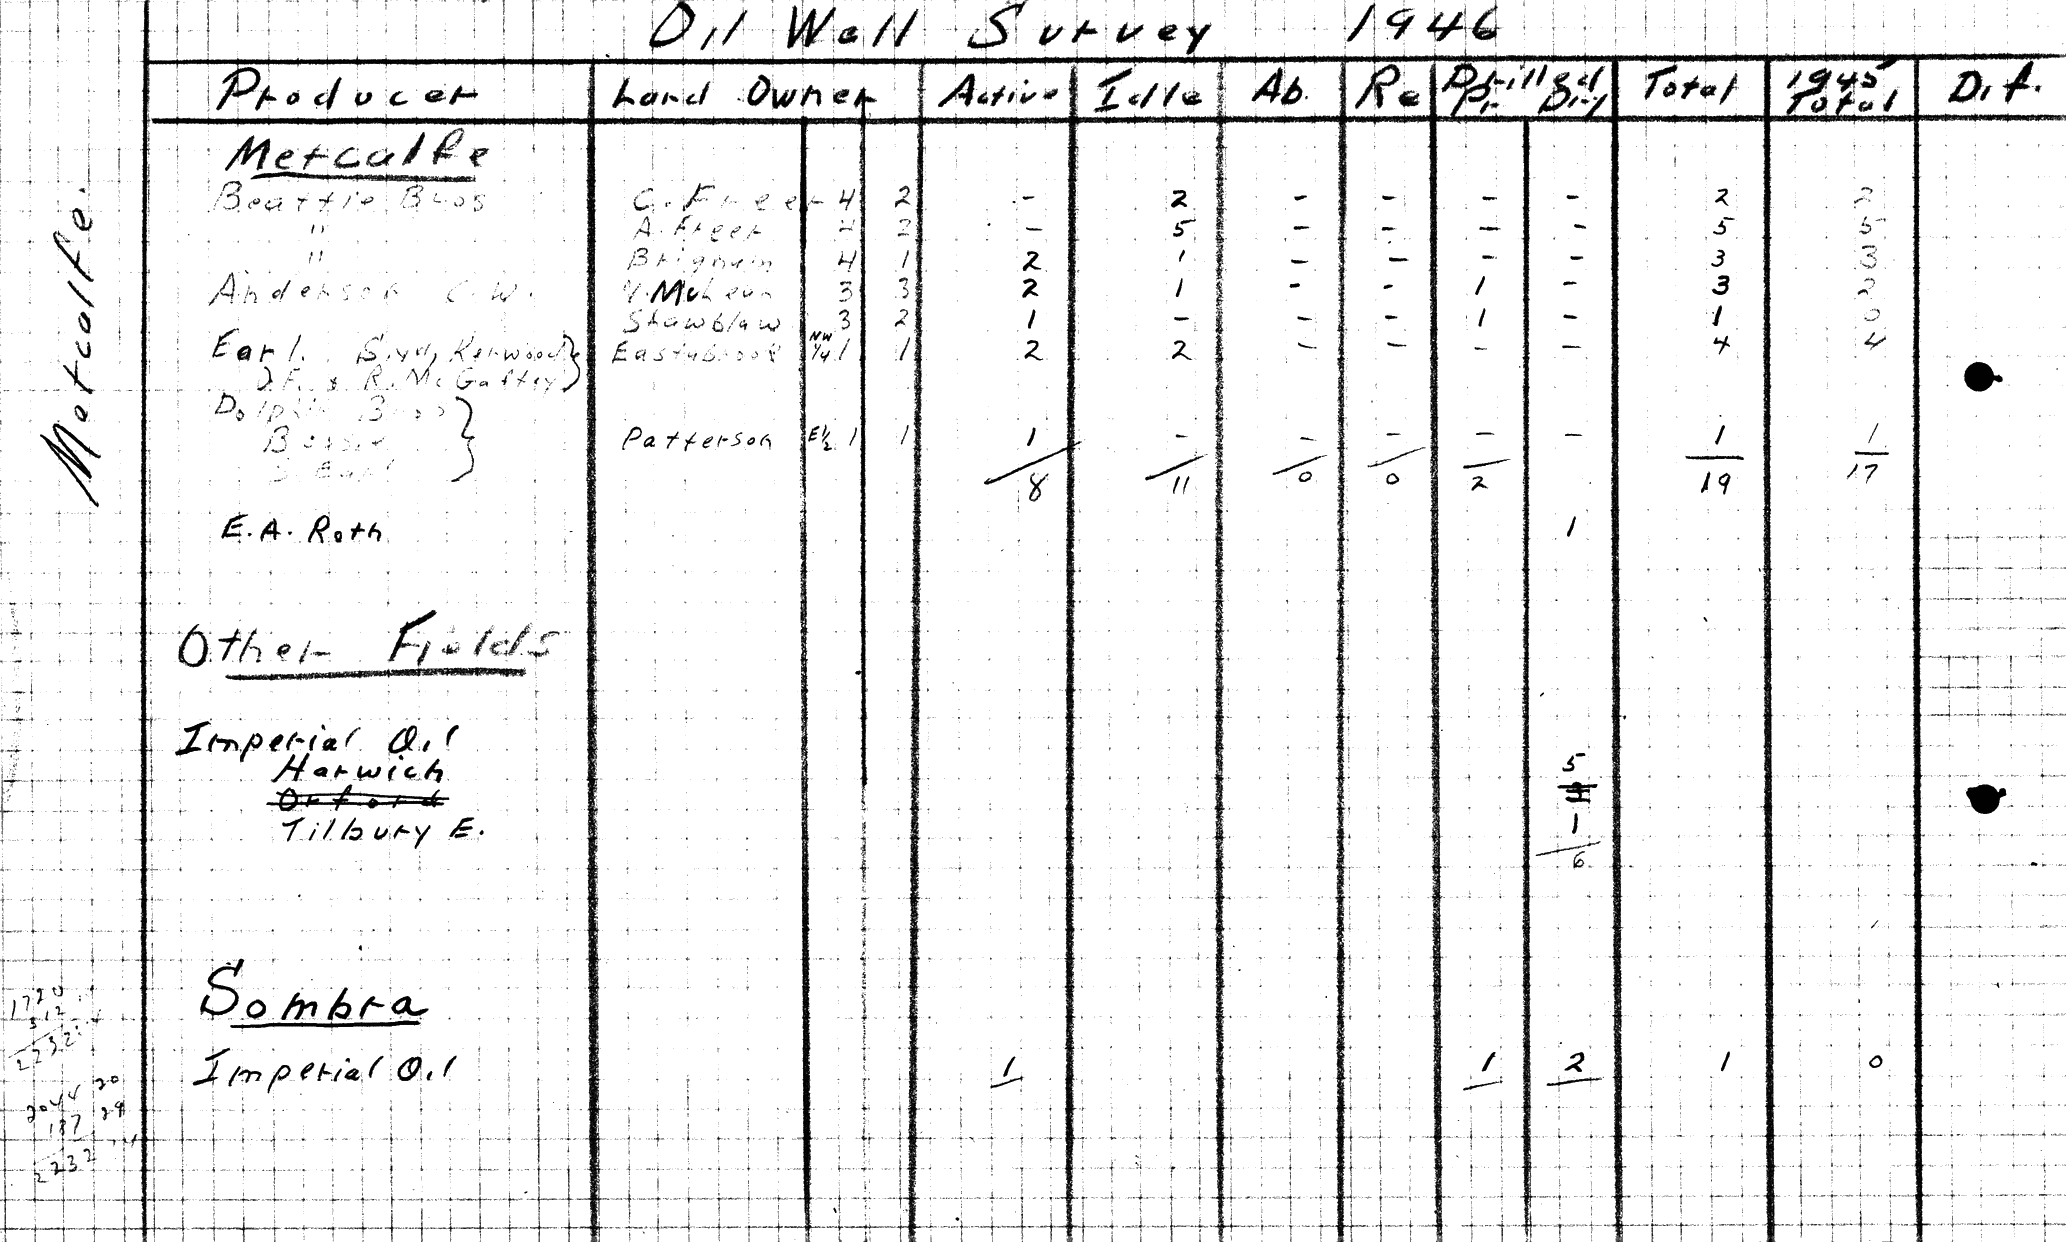 Oil Well Survey 1946
Producer Land Owner Active Idle Ab. Re Drilled Pr Dry Total 1945 Total Dif.
Metcalfe.
Metcalfe
Beattie Bros C. Freer 4 2 - 2 - - - - 2 2
" A. Freer 4 2 - 5 - - - - 5 5
" Brignum 4 1 2 1 - - - - 3 3
Anderson C.W. 3 3 2 1 - - 1 - 3 2
Stawblaw 3 2 1 - - - 1 - 1 0
Earl. Syd, Kenwood } Eastabrook NW 1/4 1 1 2 2 - - - - 4 4
J.F. & R. McGaffey }
Dolphin Bros }
Patterson E 1/2 1 1 1 - - - - - 1 1
S. Earl
8 11 0 0 2 19 17
E.A. Roth 1
Other Fields
Imperial Oil
Harwich 5
Orford
Tilbury E. 1
6
Sombra
Imperial Oil 1 1 2 1 0
1720
512
2232
2044 20
187 29
2232